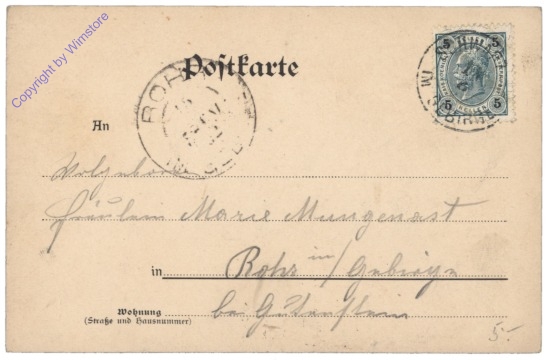 Copyright by Wimstore
Postkarte
5
5
5
5
ROHR
An
Fräulein Marie Mungenast
in Rohr im/Gebirge
bei Gutenstein
Wohnung
(Straße und Hausnummer)
5.-